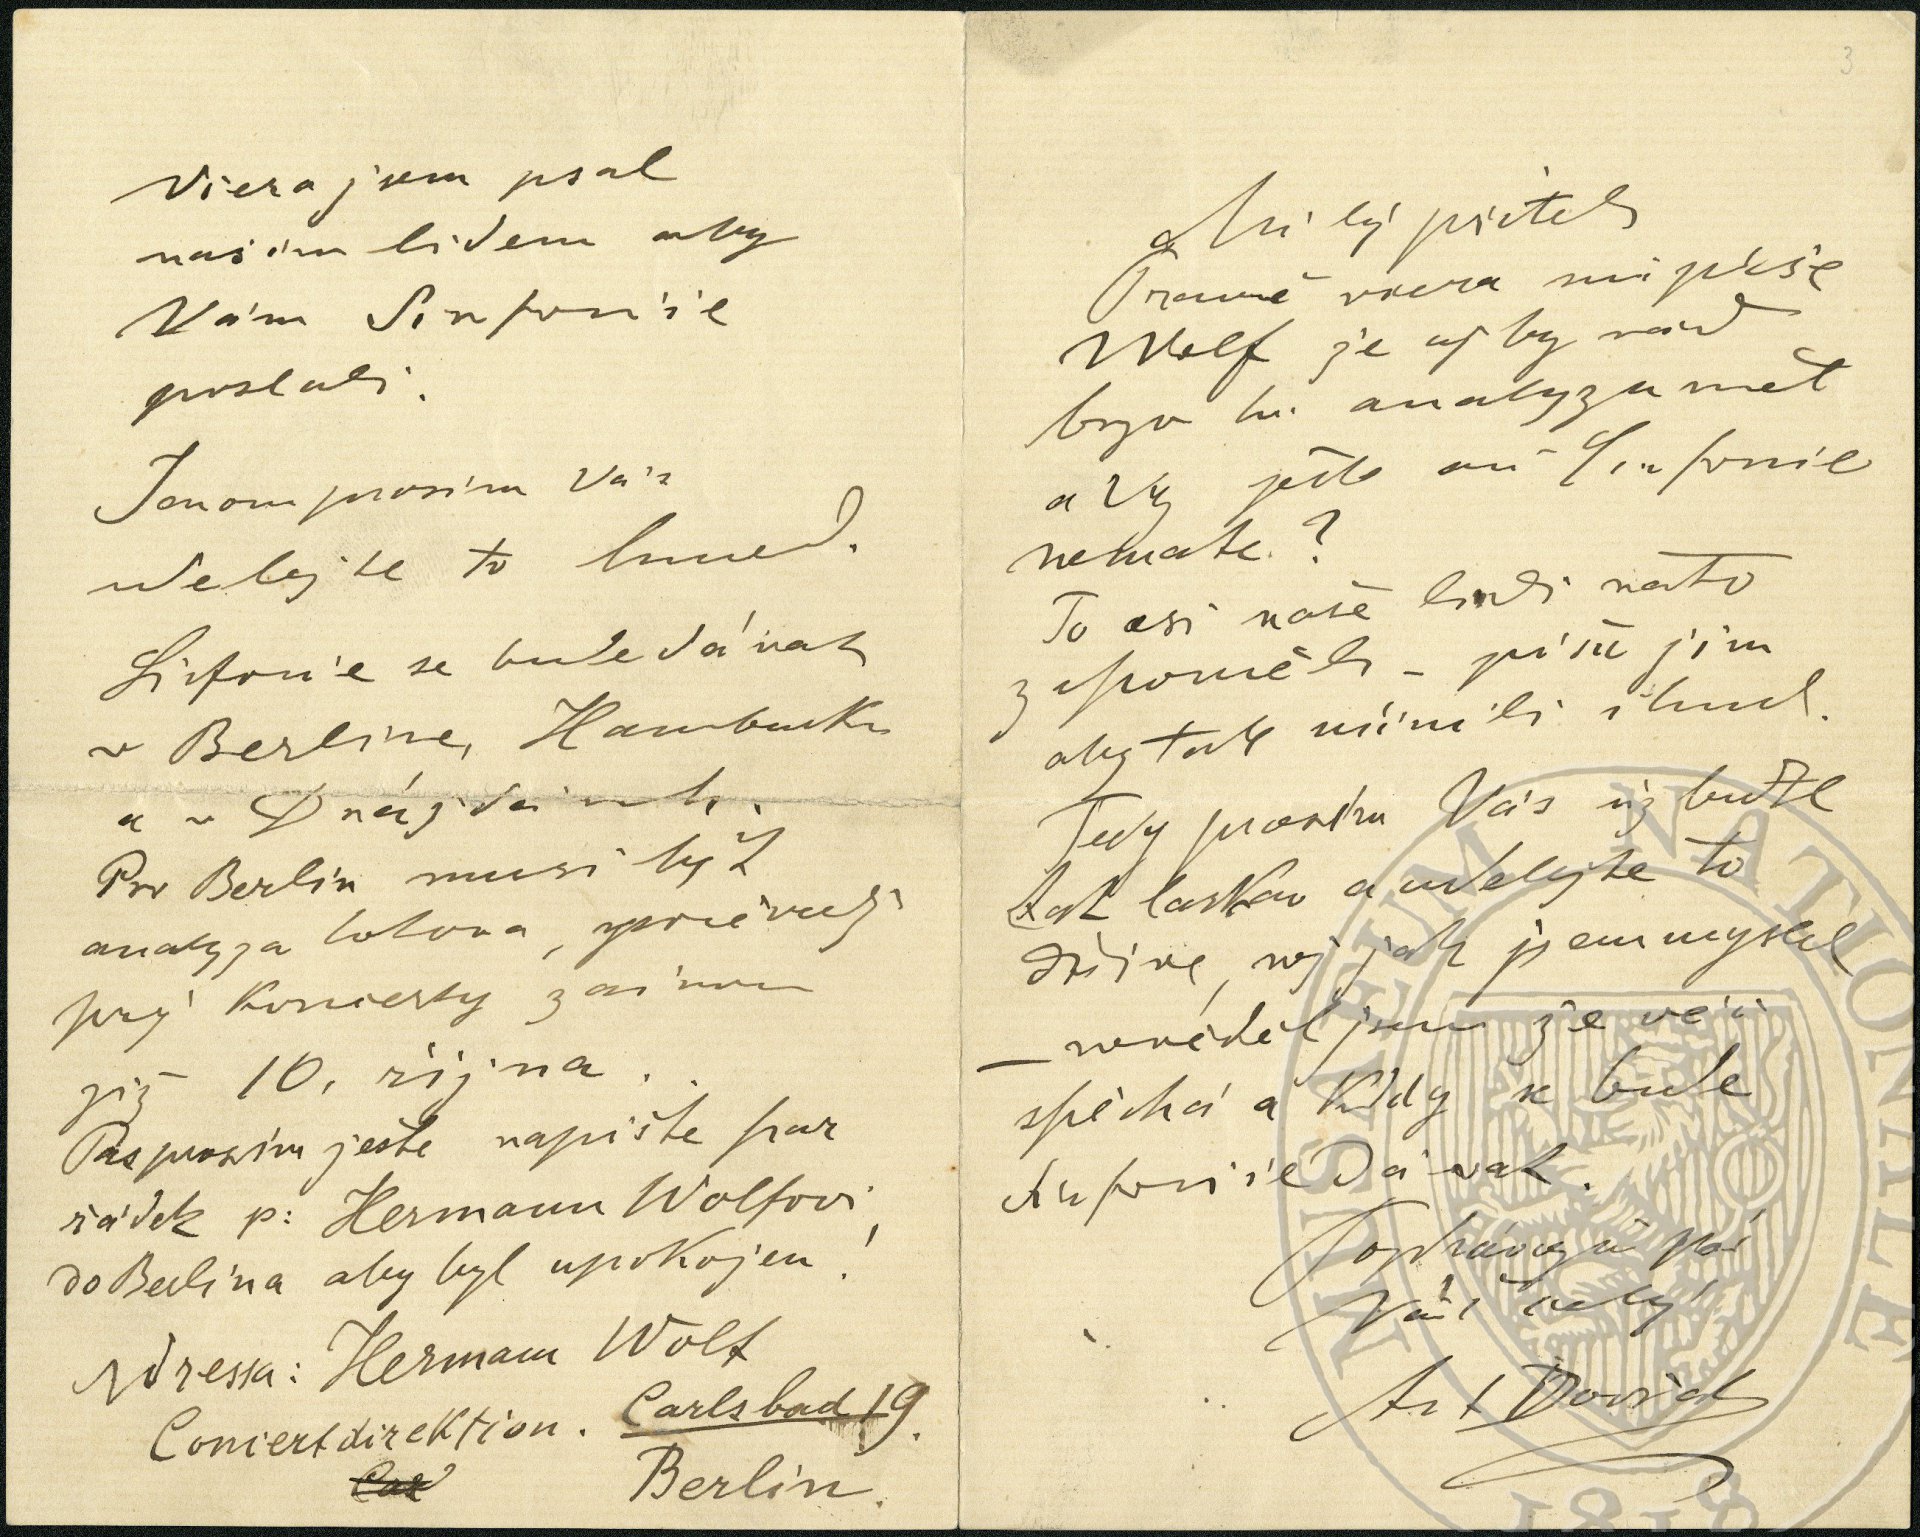 Včera jsem psal
našim lidem aby
Vám Sinfonie
poslali.
Jenom prosim Vás
udelejte to hned.
Sinfonie se bude dávat
v Berline, Hamburku
a v Drážďanech.
Pro Berlin musi být
analyza hotova, ponevadž
prý koncerty začnou
již 10. rijna.
Pas prosim ješte napište par
řádek p: Hermann Wolfovi,
do Berlina aby byl upokojen!
Adressa: Hermann Wolf
Concertdirektion. Carlsbad 19.
Berlin.
3
Milý příteli
Pravě včera mi píše
Wolf je už by rád
brzo tu analyzu mět
a Vy ješte ani Sinfonie
nemate?
To asi naše lidi nato
zapoměli – píšu jim
aby tak učinili ihned.
Tedy prosim Vás už budte
tak laskav a udelejte to
dříve, než jak jsem myslel
– nevěděl jsem že věc
spěchá a kdy se bude
Sinfonie dávat.
Váš
Ant Dvořák
MUSAEUM NATIONALE
1818